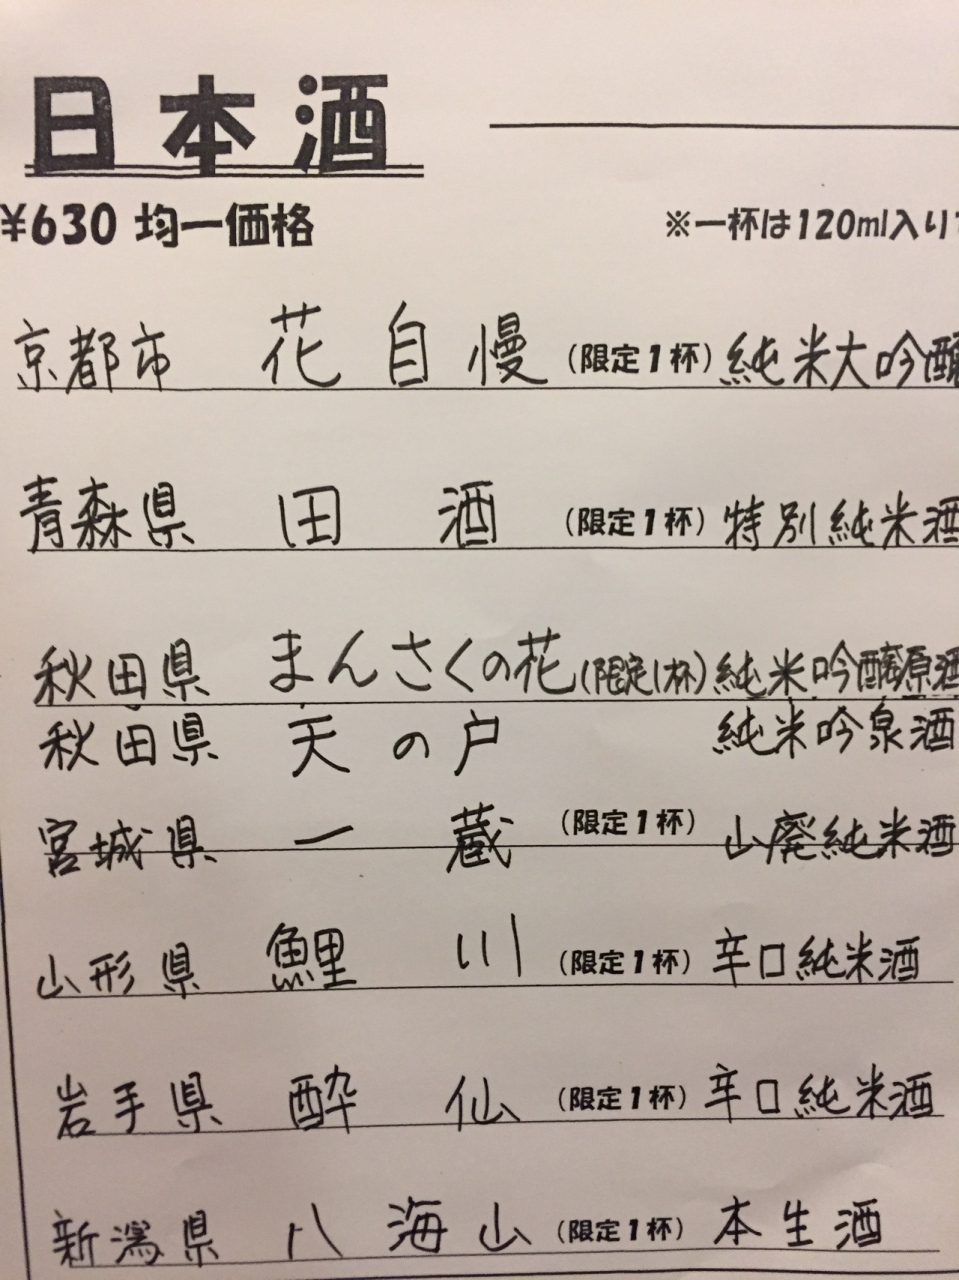 日本酒
¥630 均一価格 ※一杯は120ml入りで
京都市 花自慢 (限定1杯) 純米大吟醸
青森県 田酒 (限定1杯) 特別純米酒
秋田県 まんさくの花 (限定1杯) 純米吟醸原酒
秋田県 天の戸 純米吟泉酒
宮城県 一蔵 (限定1杯) 山廃純米酒
山形県 鯉川 (限定1杯) 辛口純米酒
岩手県 酔仙 (限定1杯) 辛口純米酒
新潟県 八海山 (限定1杯) 本生酒